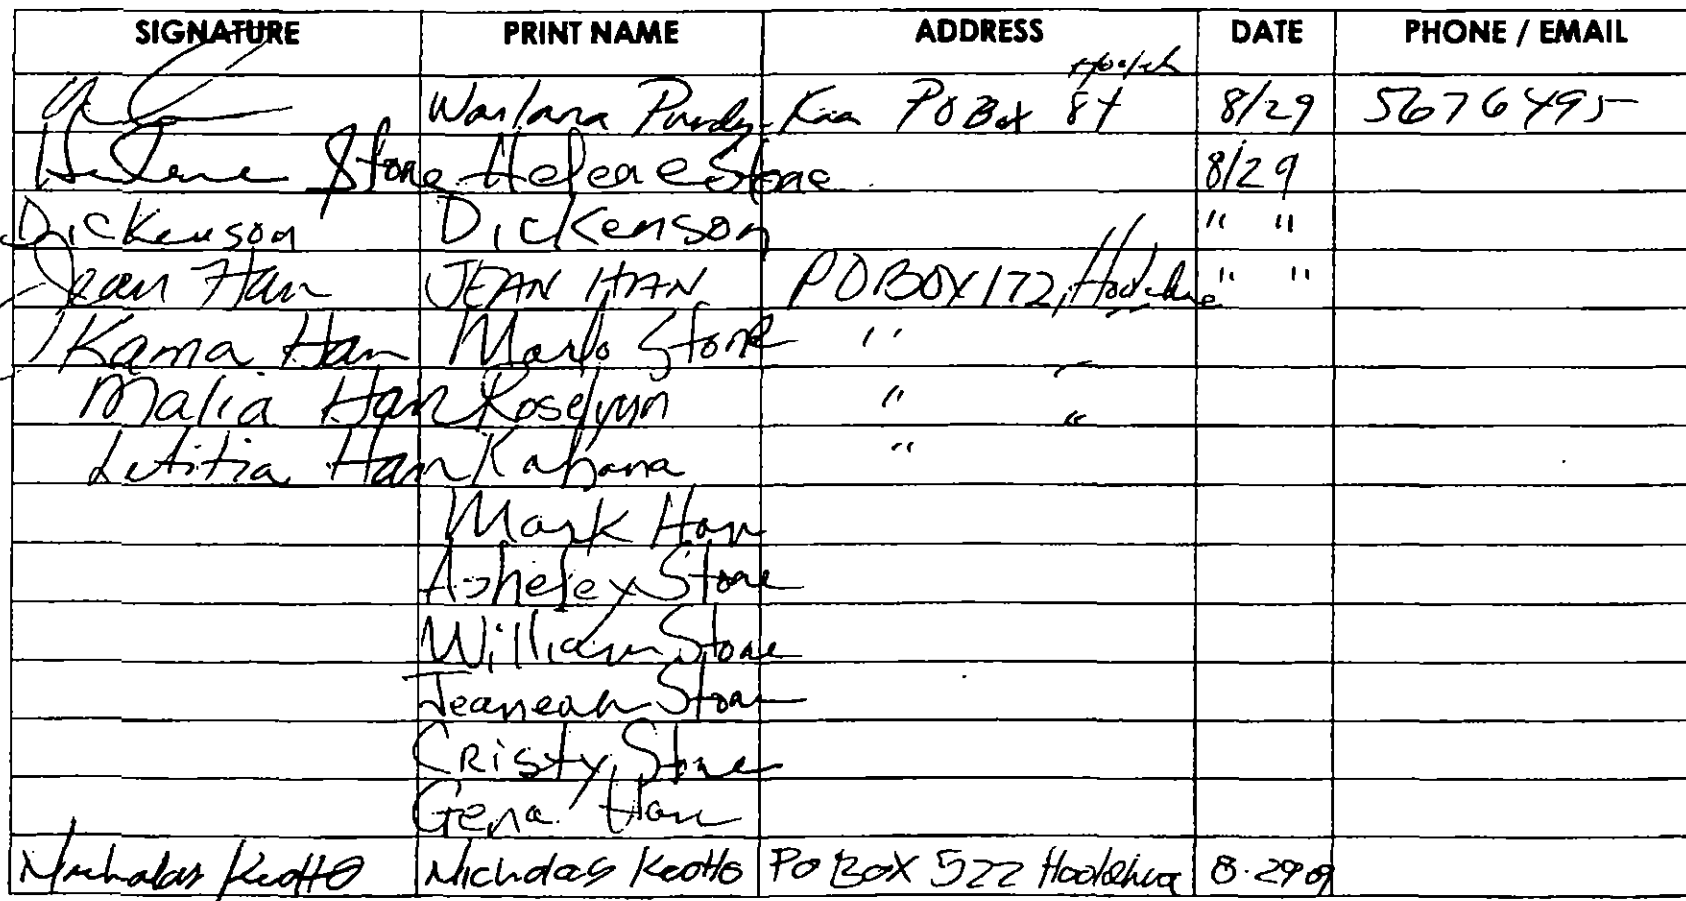 SIGNATURE PRINT NAME ADDRESS DATE PHONE / EMAIL
Wailana Purdy-Kaa PO Box 84 8/29 5676495
Helene Stone Helene Stone 8/29
Dickenson Dickenson " "
Jean Han JEAN HAN PO BOX 172, Hoolehua " "
Kama Han Marlo Stone "
Malia Han Roselynn " "
Letitia Han Kahana "
Mark Han
Asheley Stone
William Stone
Jeaneah Stone
CRisty Stone
Gena Han
Nicholas Keotto Nicholas Keotto PO BOX 522 Hoolehua 8.29.09